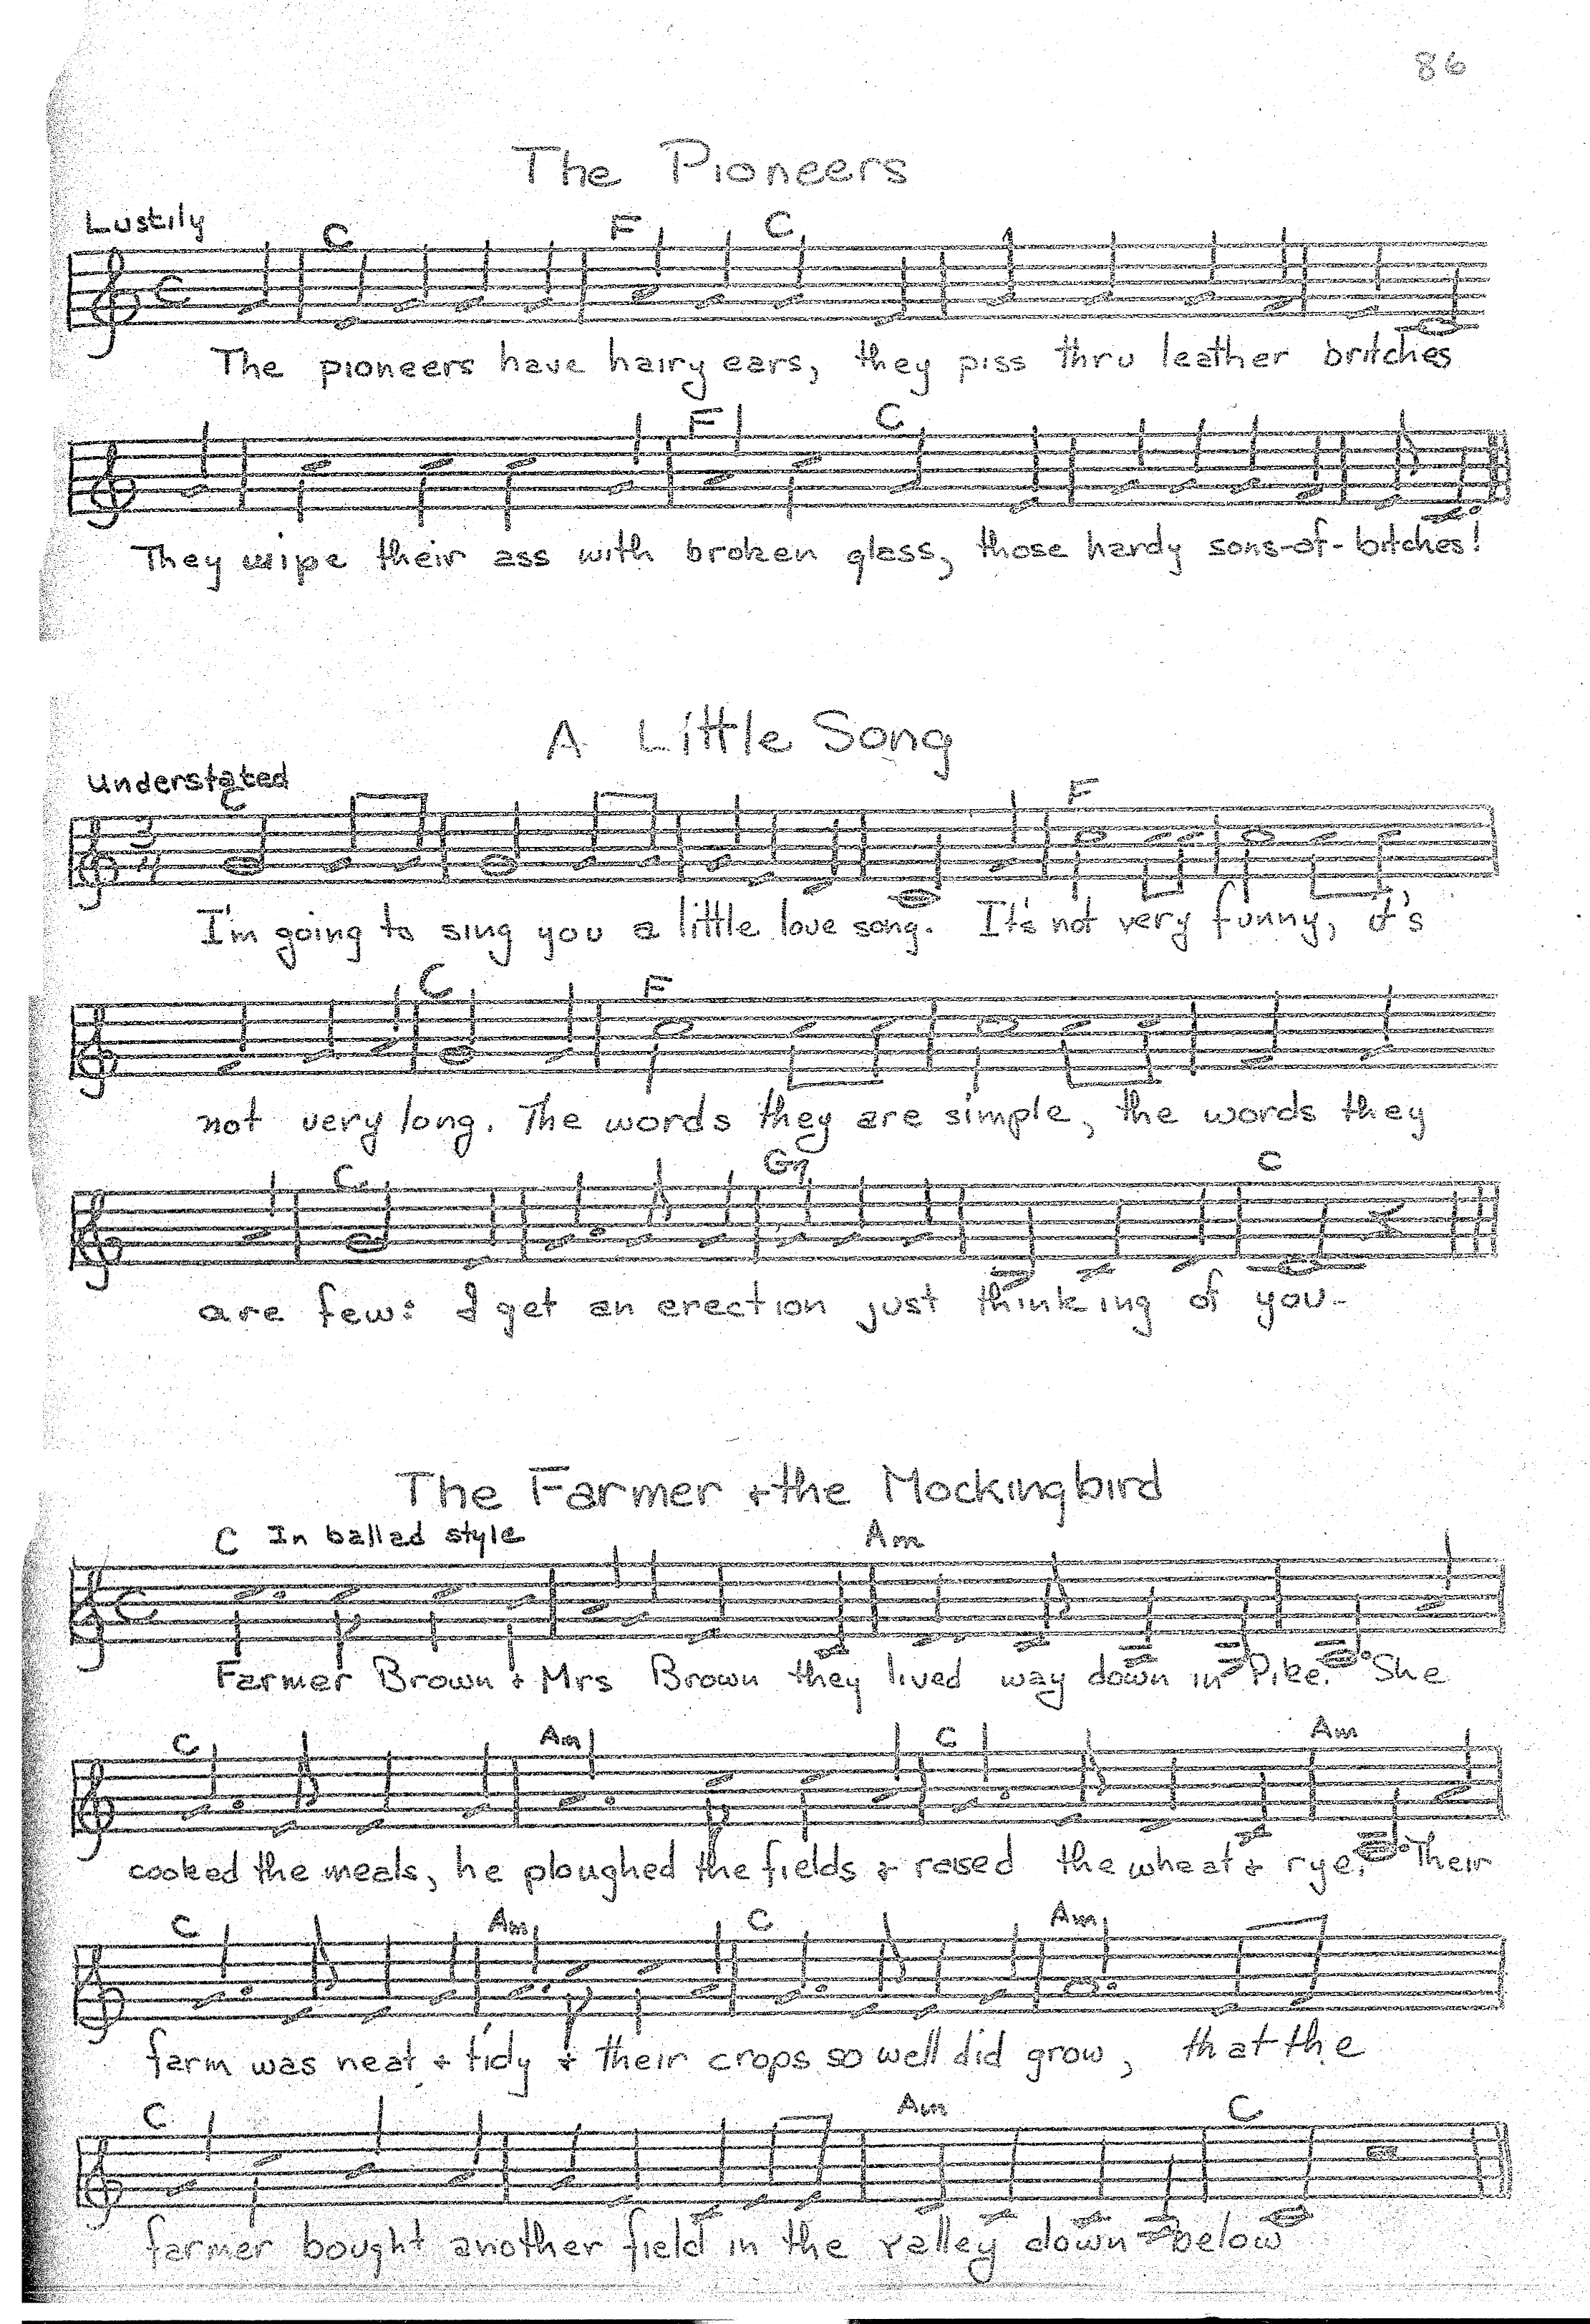 86
The Pioneers
Lustily
C F C
The pioneers have hairy ears, they piss thru leather britches
F C
They wipe their ass with broken glass, those hardy sons-of-bitches!
A Little Song
Understated
C F
I'm going to sing you a little love song. It's not very funny, it's
C F
not very long. The words they are simple, the words they
C G7 C
are few: I get an erection just thinking of you-
The Farmer + the Mockingbird
C In ballad style Am
Farmer Brown + Mrs Brown they lived way down in Pike. She
C Am C Am
cooked the meals, he ploughed the fields + raised the wheat + rye. Their
C Am C Am
farm was neat + tidy + their crops so well did grow, that the
C Am C
farmer bought another field in the valley down below